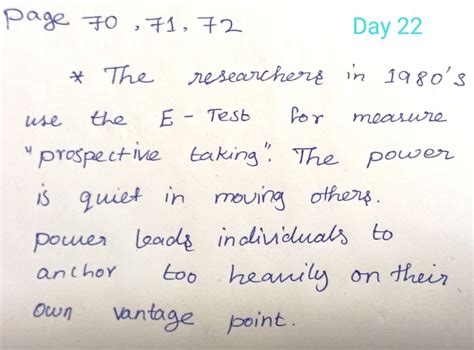 page 70, 71, 72
Day 22
* The researchers in 1980's
use the E - Test for measure
"prospective taking". The power
is quiet in moving others.
power leads individuals to
anchor too heavily on their
own vantage point.